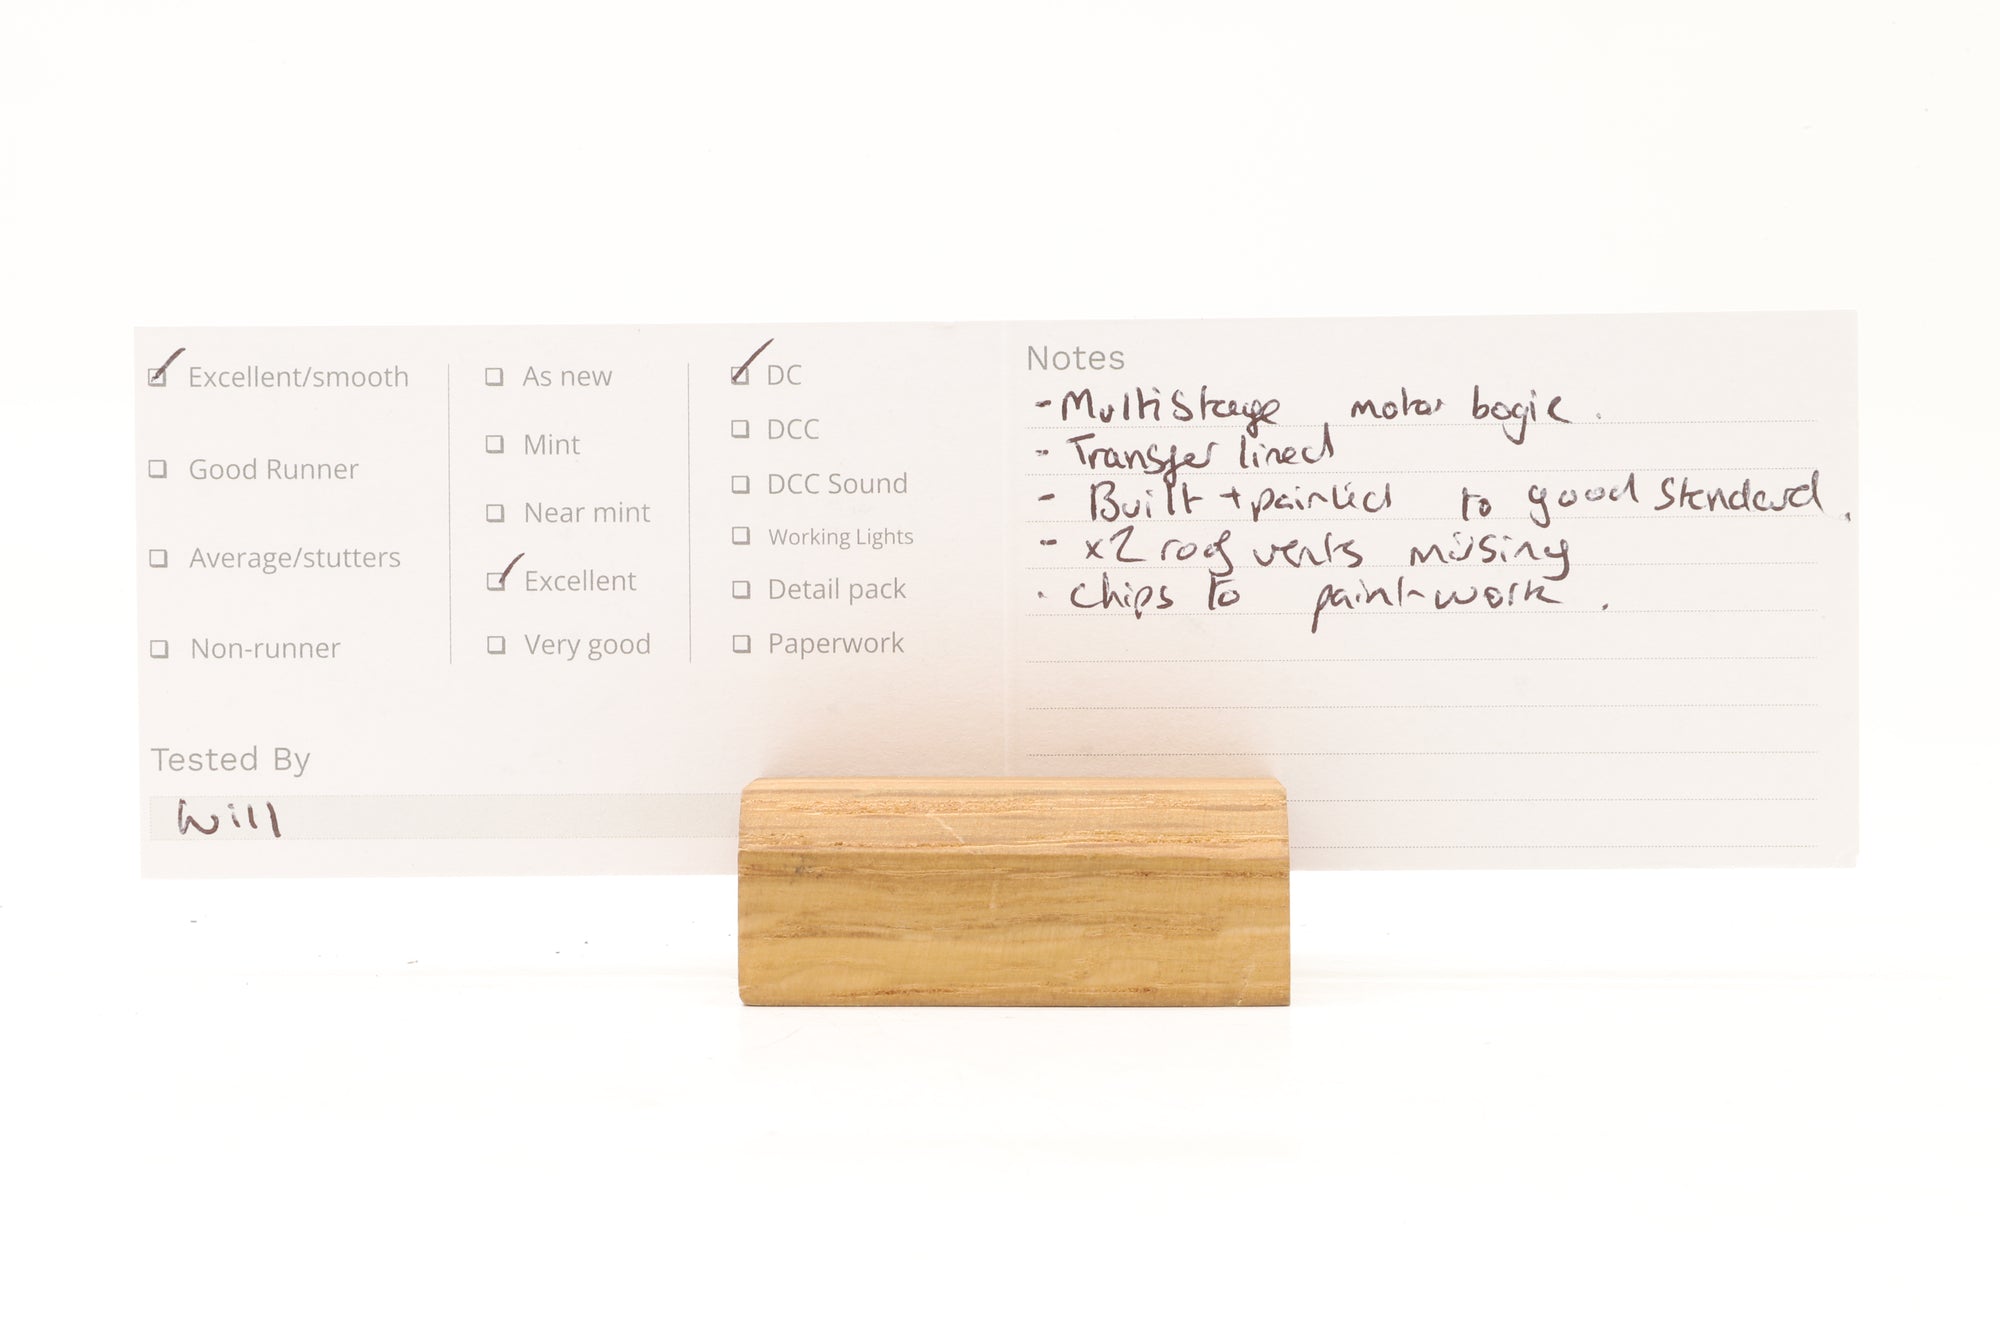 Excellent/smooth
Good Runner
Average/stutters
Non-runner
As new
Mint
Near mint
Excellent
Very good
DC
DCC
DCC Sound
Working Lights
Detail pack
Paperwork
Tested By
Will
Notes
- Multistage motor bogie.
- Transfer lined
- Built + painted to good standard.
- x2 roof vents missing
- chips to paint-work.